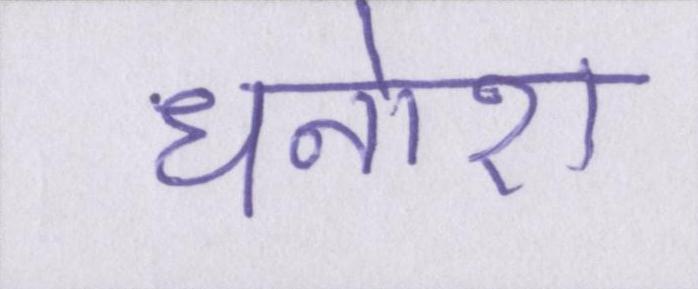 धनोरा